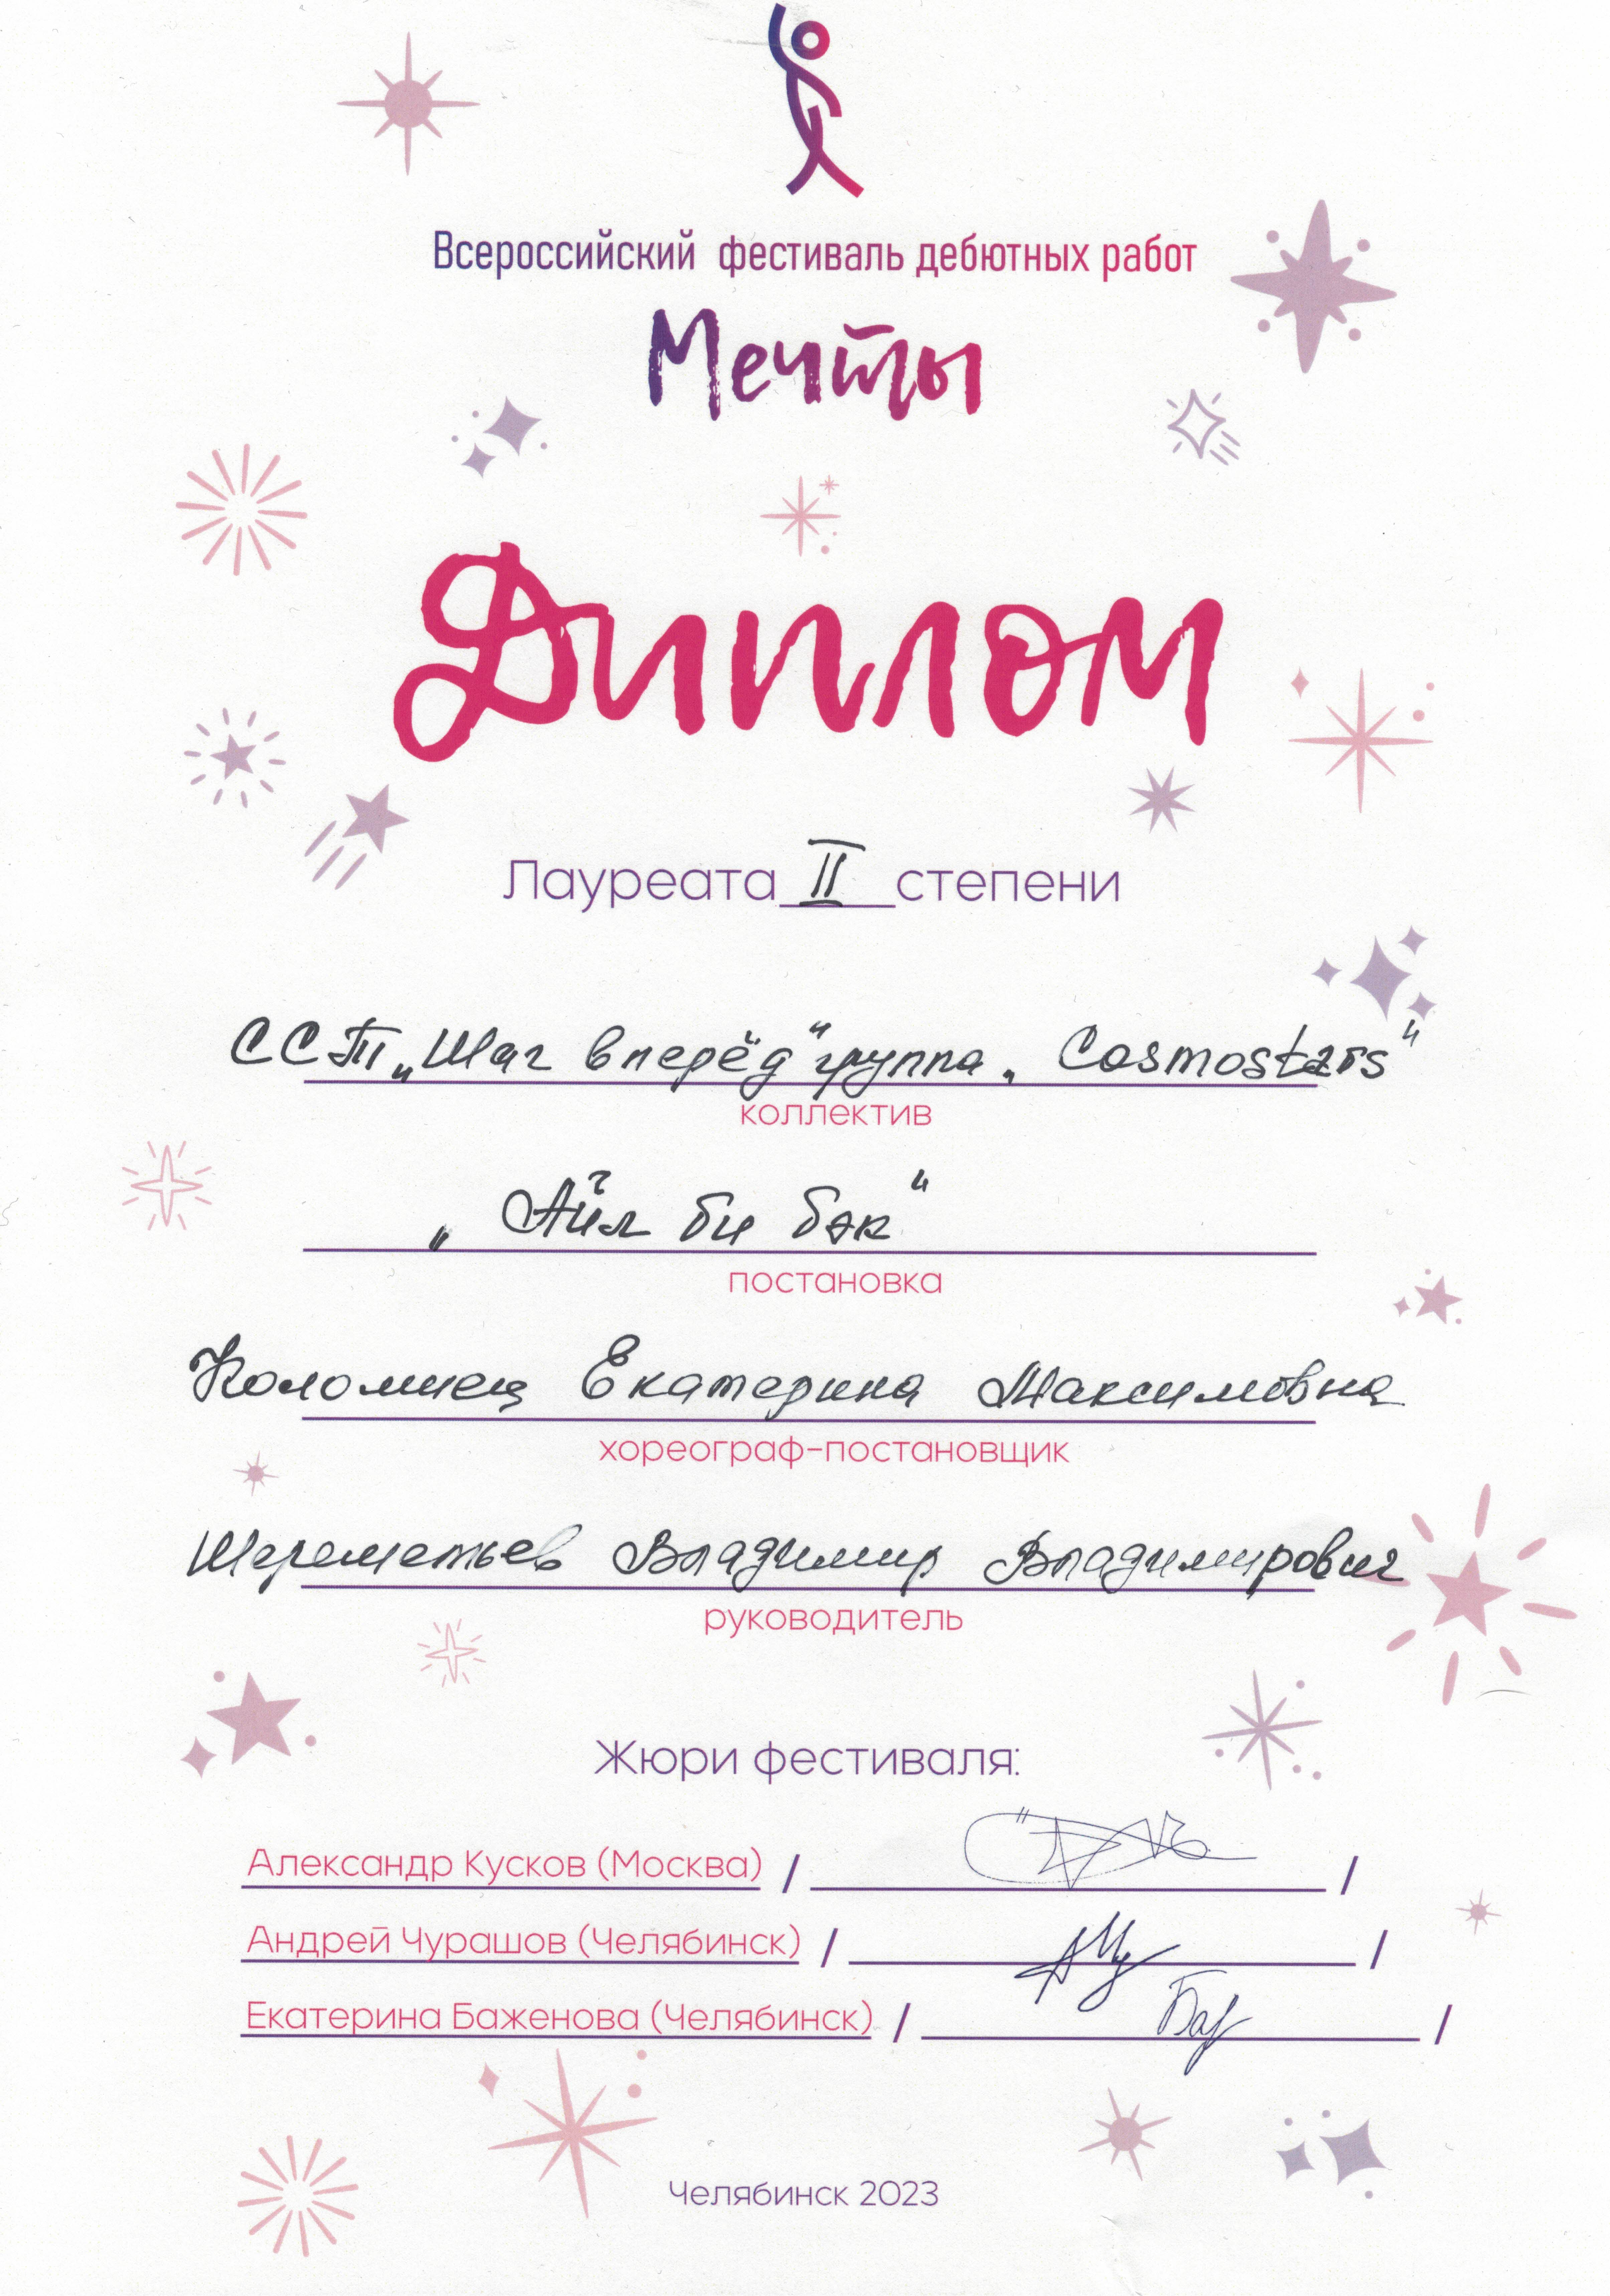 Всероссийский фестиваль дебютных работ
Мечты
Диплом
Лауреата II степени
ССТ „Шаг вперёд“ группа „Cosmostars“
коллектив
„Айл би бэк“
постановка
Коломиец Екатерина Максимовна
хореограф-постановщик
Шереметьев Владимир Владимирович
руководитель
Жюри фестиваля:
Александр Кусков (Москва) / /
Андрей Чурашов (Челябинск) / /
Екатерина Баженова (Челябинск) / /
Челябинск 2023